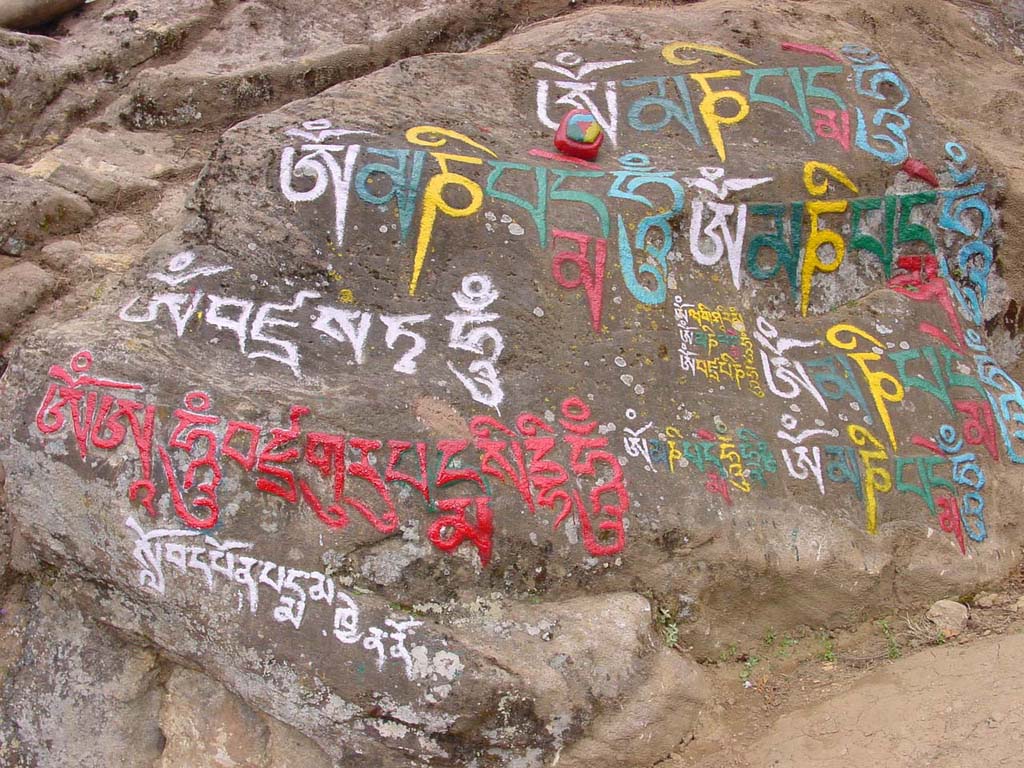 ཨོཾ་མ་ཎི་པདྨེ་ཧཱུྃ
ཨོཾ་མ་ཎི་པདྨེ་ཧཱུྃ
ཨོཾ་མ་ཎི་པདྨེ་ཧཱུྃ
ཨོཾ་བཛྲ་ས་ཏ་ཧཱུྃ
ཨོཾ་མ་ཎི་པདྨེ་ཧཱུྃ
ཨོཾ་ཨཱཿ་ཧཱུྃ་བཛྲ་གུ་རུ་པདྨ་སིདྡྷི་ཧཱུྃ
ཨོཾ་མ་ཎི་པདྨེ་ཧཱུྃ
ཨོཾ་མ་ཎི་པདྨེ་ཧཱུྃ
སློབ་དཔོན་པདྨ་མཁྱེན་ནོ